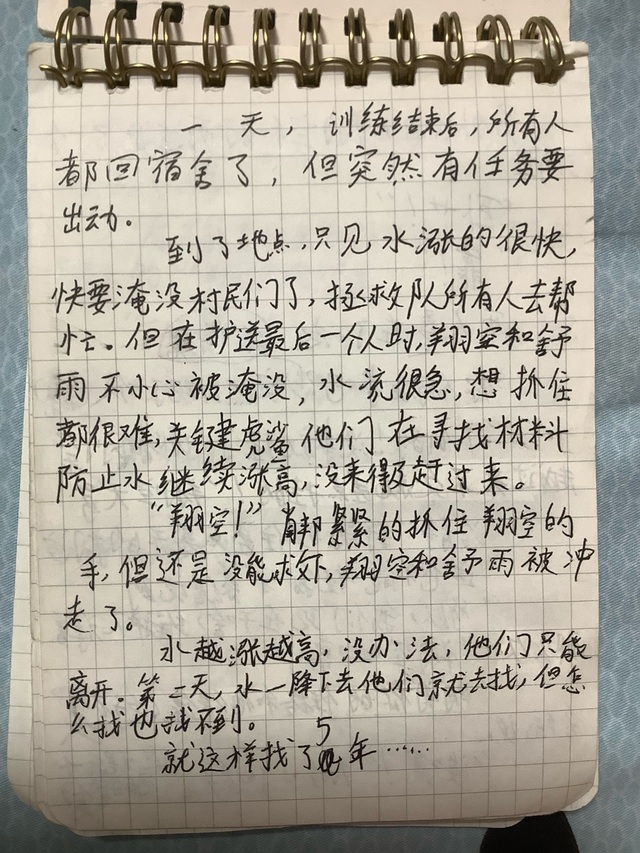 一天，训练结束后，所有人
都回宿舍了，但突然有任务要
出动。
到了地点，只见水涨的很快，
快要淹没村民们了，拯救队所有人去帮
忙。但在护送最后一个人时，翔空和舒
雨不小心被淹没，水流很急，想抓住
都很难，关键虎鲨他们在寻找材料
防止水继续涨高，没来得及赶过来。
“翔空！”紧紧的抓住翔空的
手，但还是没能救下，翔空和舒雨被冲
走了。
水越涨越高，没办法，他们只能
离开。第二天，水一降下去他们就去找，但怎
么找也找不到。
就这样找了5年……